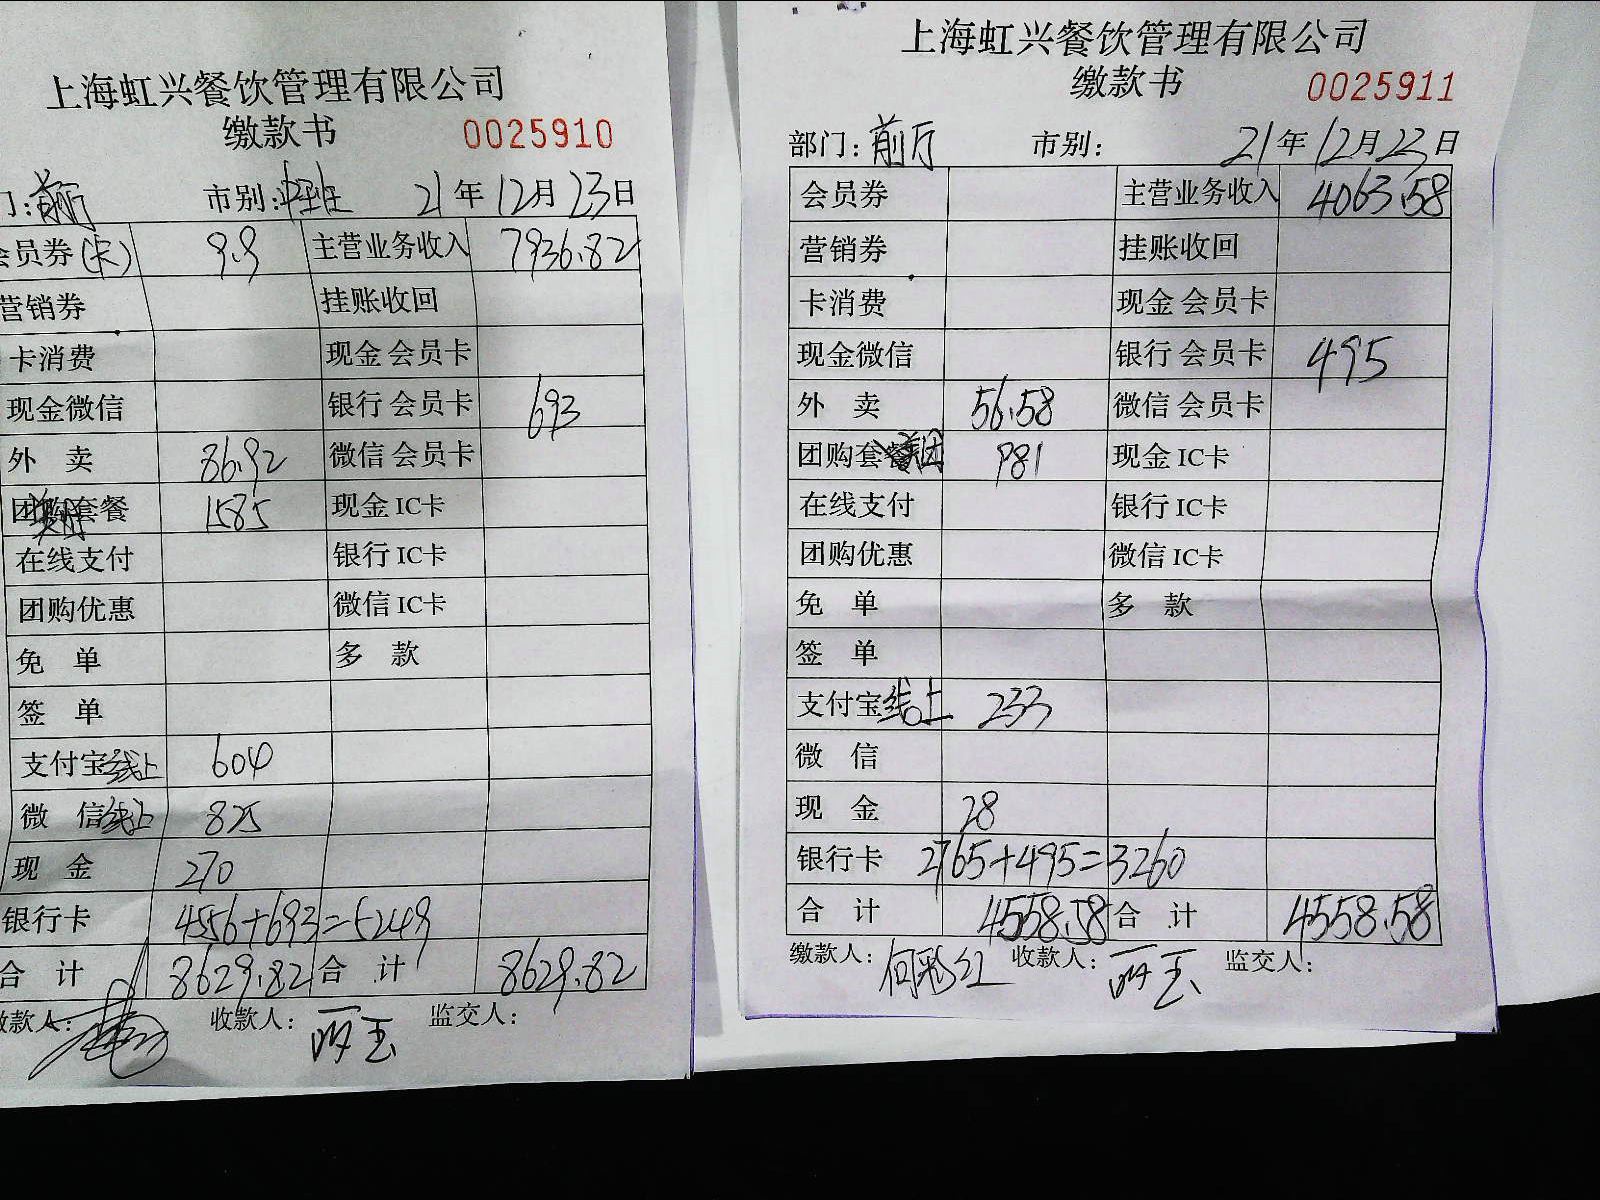 上海虹兴餐饮管理有限公司
缴款书 0025910
门:前厅 市别: 21年12月23日
会员券(卡) 9.9 主营业务收入 7936.82
营销券 挂账收回
卡消费 现金 会员卡
现金微信 银行 会员卡 693
外 卖 86.92 微信 会员卡
团购套餐 1585 现金 IC卡
在线支付 银行 IC卡
团购优惠 微信 IC卡
免 单 多 款
签 单
支付宝线上 604
微 信线上 825
现 金 270
银行卡 4556+693=5249
合 计 8629.82 合 计 8629.82
缴款人: 收款人: 丽玉 监交人:
上海虹兴餐饮管理有限公司
缴款书 0025911
部门:前厅 市别: 21年12月23日
会员券 主营业务收入 4063.58
营销券 挂账收回
卡消费 现金 会员卡
现金微信 银行 会员卡 495
外 卖 56.58 微信 会员卡
团购套餐美团 981 现金 IC卡
在线支付 银行 IC卡
团购优惠 微信 IC卡
免 单 多 款
签 单
支付宝线上 233
微 信
现 金 28
银行卡 2765+495=3260
合 计 4558.58 合 计 4558.58
缴款人: 何彩红 收款人: 丽玉 监交人: